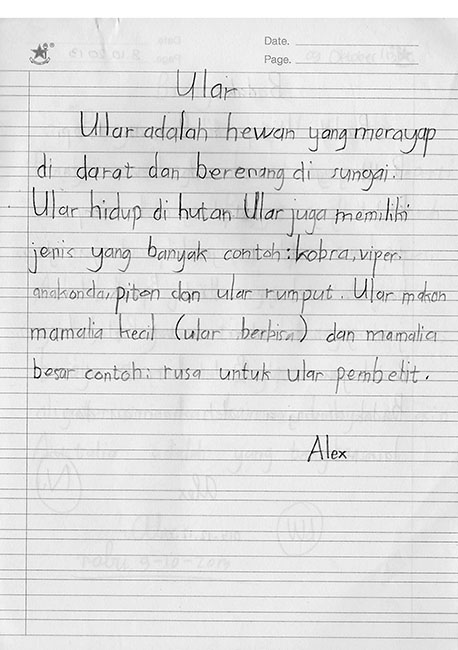 Date.
Page.
Ular
Ular adalah hewan yang merayap
di darat dan berenang di sungai.
Ular hidup di hutan Ular juga memiliki
jenis yang banyak contoh : kobra, viper.
anakonda, piton dan ular rumput. Ular makan
mamalia kecil (ular berbisa) dan mamalia
besar contoh : rusa untuk ular pembelit.
Alex